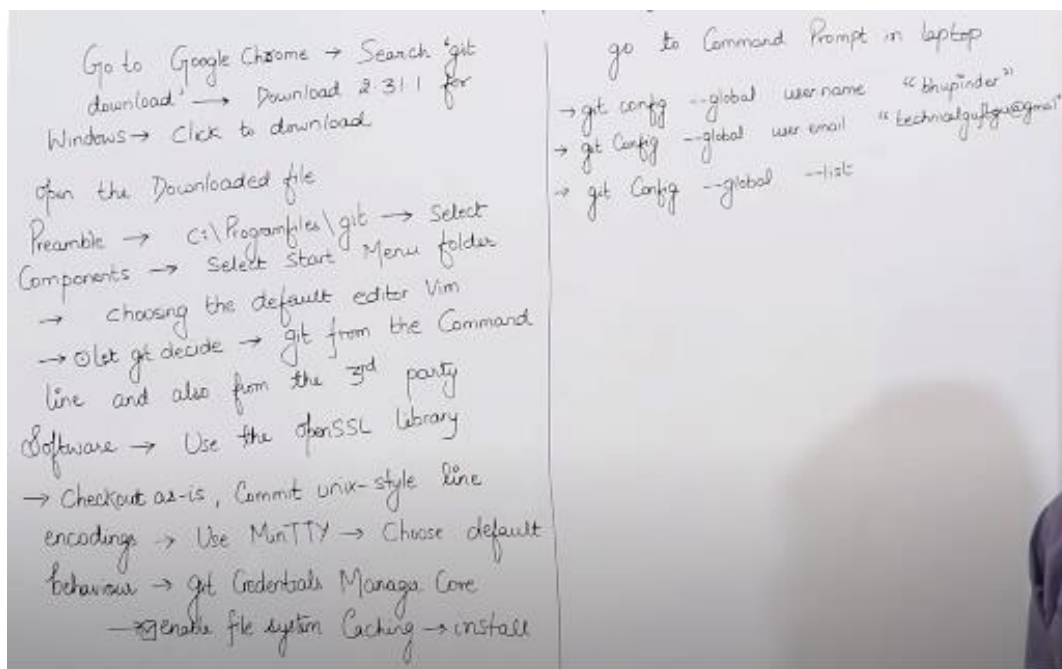 Go to Google Chrome → Search 'git
download' → Download 2.31.1 for
Windows → Click to download
Open the Downloaded file
Preamble → C:\Programfiles\git → Select
Components → Select Start Menu folder
→ choosing the default editor Vim
→ let git decide → git from the Command
line and also from the 3rd party
Software → Use the openSSL Library
→ Checkout as-is, Commit unix-style line
encodings → Use MinTTY → Choose default
behaviour → git Credentials Manager Core
→ enable file system Caching → install
go to Command Prompt in laptop
→ git config --global user name "bhupinder"
→ git Config --global user email "technicalguftgu@gmai"
→ git Config --global --list